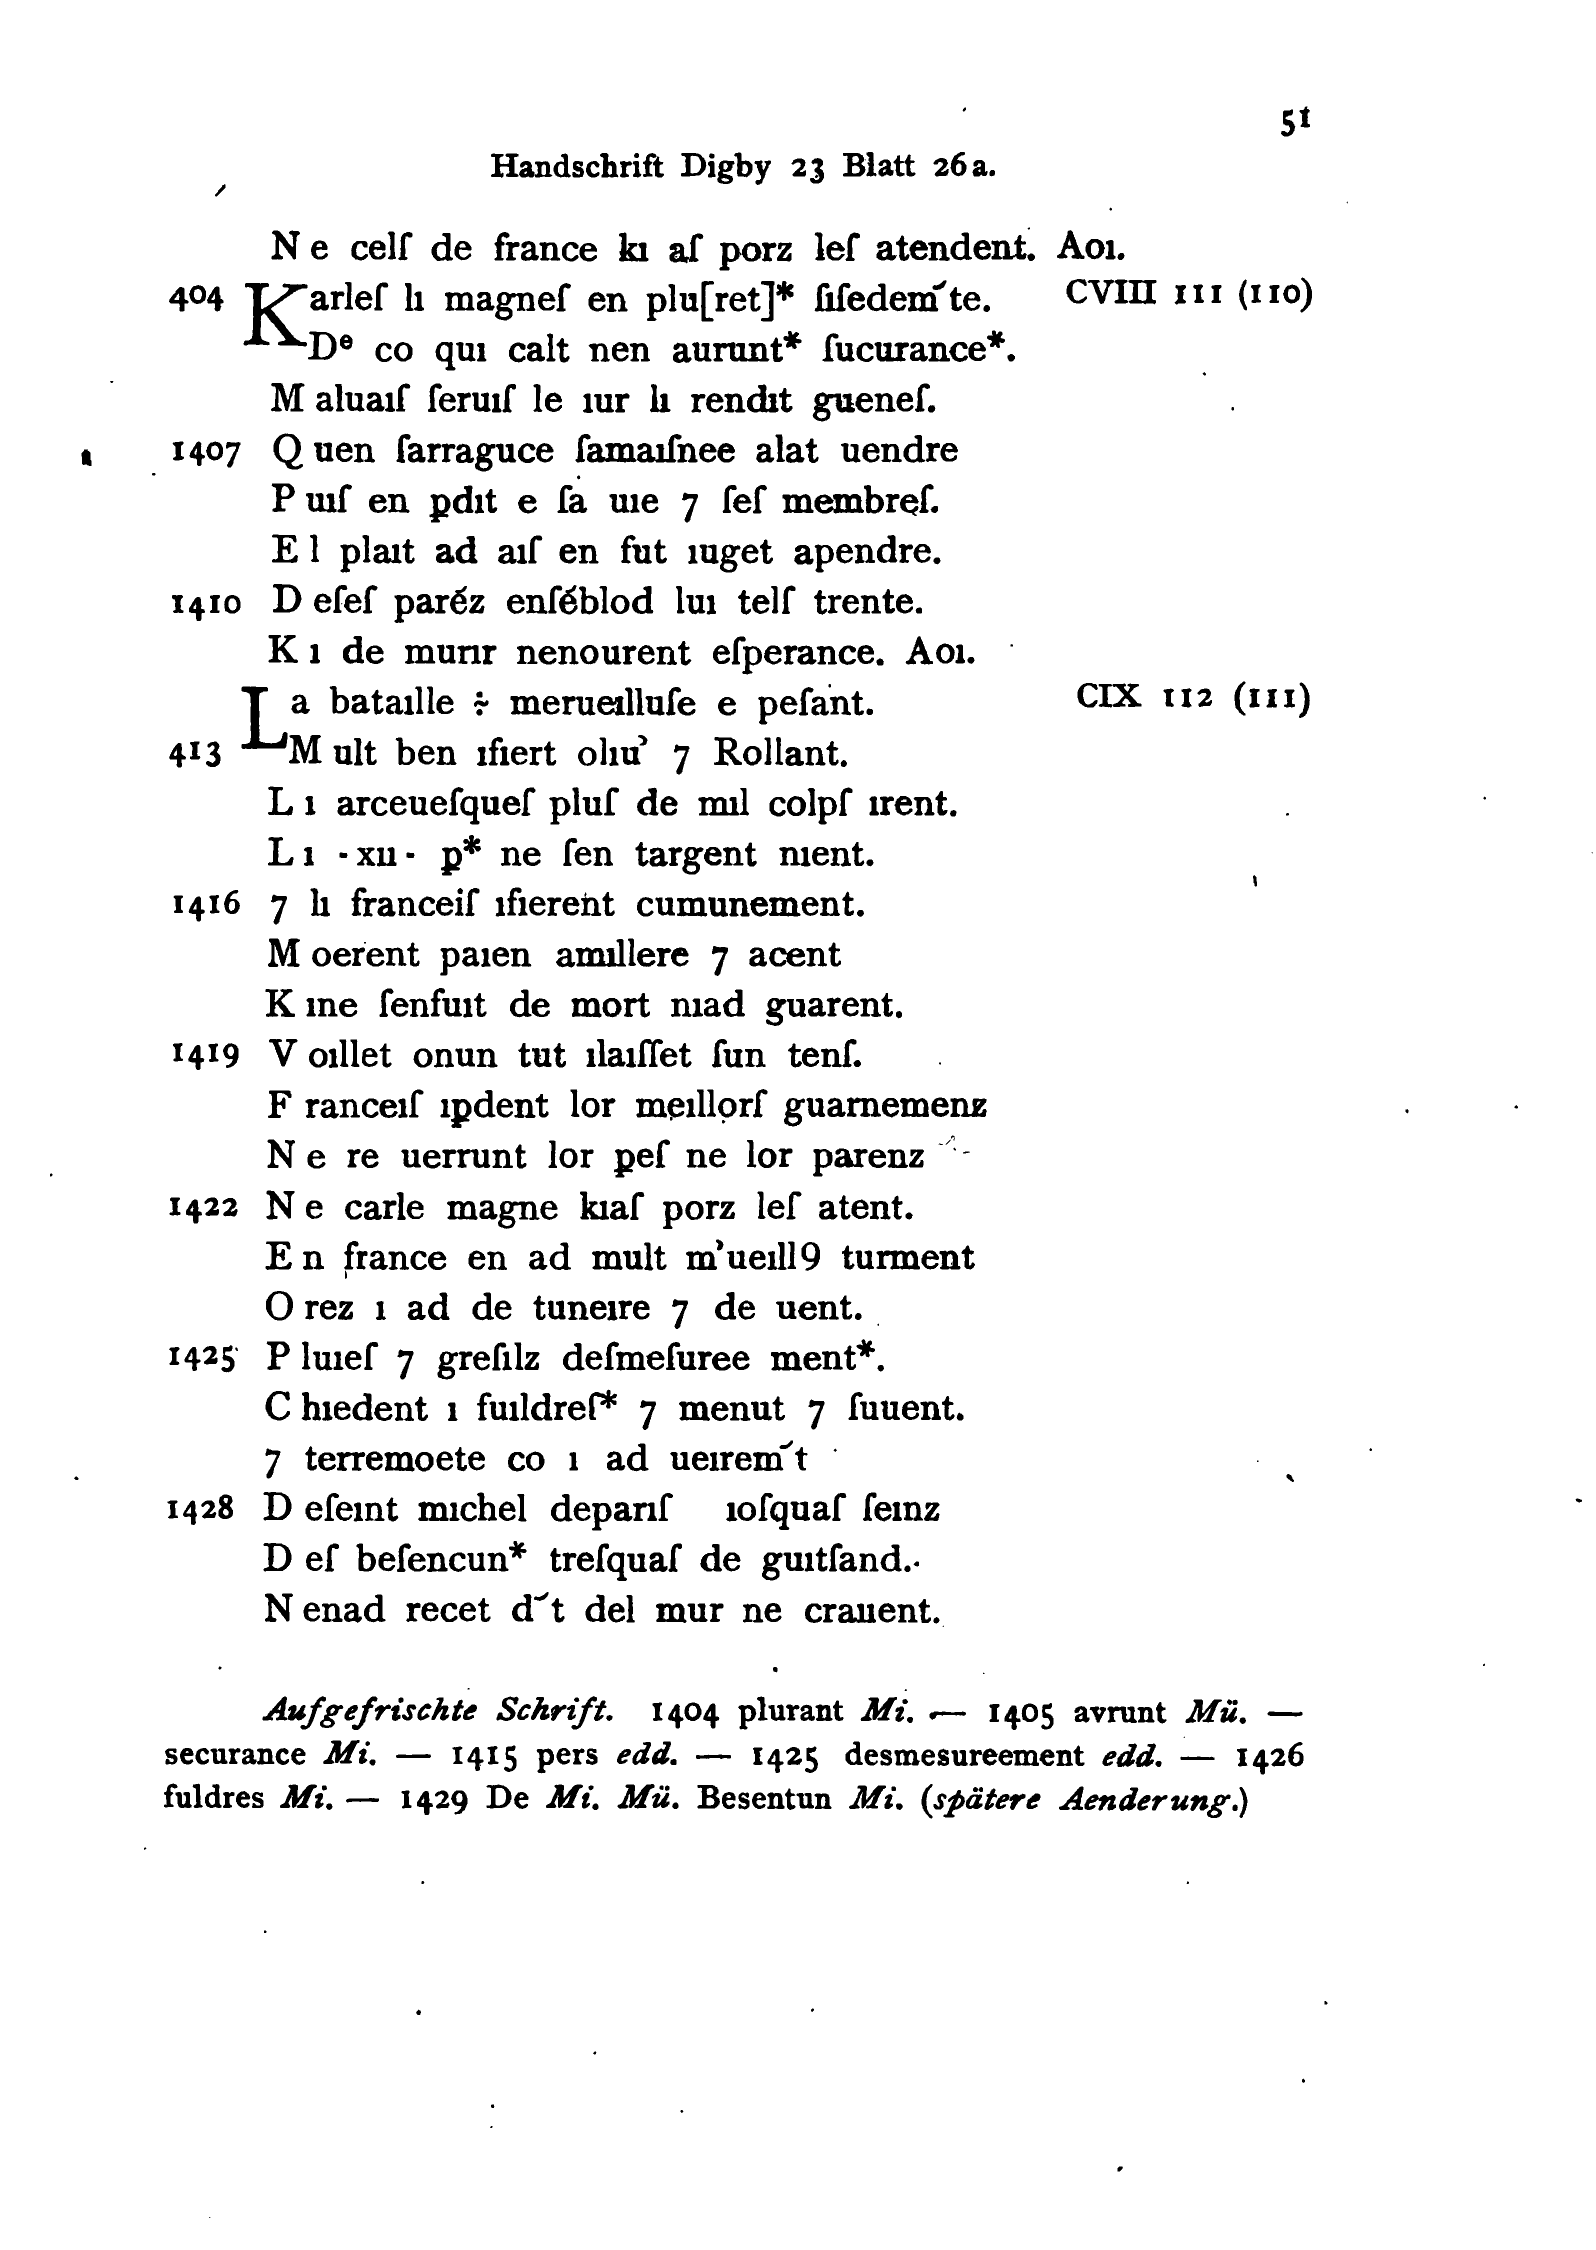 51
Handschrift Digby 23 Blatt 26a.
N e celſ de france kı aſ porz leſ atendent. Aoı.
404 Karleſ lı magneſ en plu[ret]* ſıſedem̄te. CVIII 111 (110)
Dᵉ co quı calt nen aurunt* ſucurance*.
M aluaıſ ſeruıſ le ıur lı rendıt gueneſ.
1407 Q uen ſarraguce ſamaıſnee alat uendre
P uıſ en ꝑdıt e ſa uıe 7 ſeſ membrẹſ.
E l plaıt ad aıſ en fut ıuget apendre.
1410 D eſeſ paréz enſéblod luı telſ trente.
K ı de murır nenourent eſperance. Aoı.
La bataılle ÷ merueılluſe e peſant. CIX 112 (111)
413 M ult ben ıfıert olıu’ 7 Rollant.
L ı arceueſqueſ pluſ de mıl colpſ ırent.
L ı ·xıı· ꝑ* ne ſen targent nıent.
1416 7 lı franceiſ ıfıerent cumunement.
M oerent paıen amıllere 7 acent
K ıne ſenfuıt de mort nıad guarent.
1419 V oıllet onun tut ılaıſſet ſun tenſ.
F ranceıſ ıꝑdent lor mẹıllọrſ guarnemenz
N e re uerrunt lor ꝑeſ ne lor parenz
1422 N e carle magne kıaſ porz leſ atent.
E n france en ad mult m’ueıll9 turment
O rez ı ad de tuneıre 7 de uent.
1425 P luıeſ 7 greſılz deſmeſuree ment*.
C hıedent ı fuıldreſ* 7 menut 7 ſuuent.
7 terremoete co ı ad ueırem̄t
1428 D eſeınt mıchel deparıſ ıoſquaſ ſeınz
D eſ beſencun* treſquaſ de guıtſand..
N enad recet d̄t del mur ne crauent.
Aufgefrischte Schrift. 1404 plurant Mi. — 1405 avrunt Mü. —
securance Mi. — 1415 pers edd. — 1425 desmesureement edd. — 1426
fuldres Mi. — 1429 De Mi. Mü. Besentun Mi. (spätere Aenderung.)